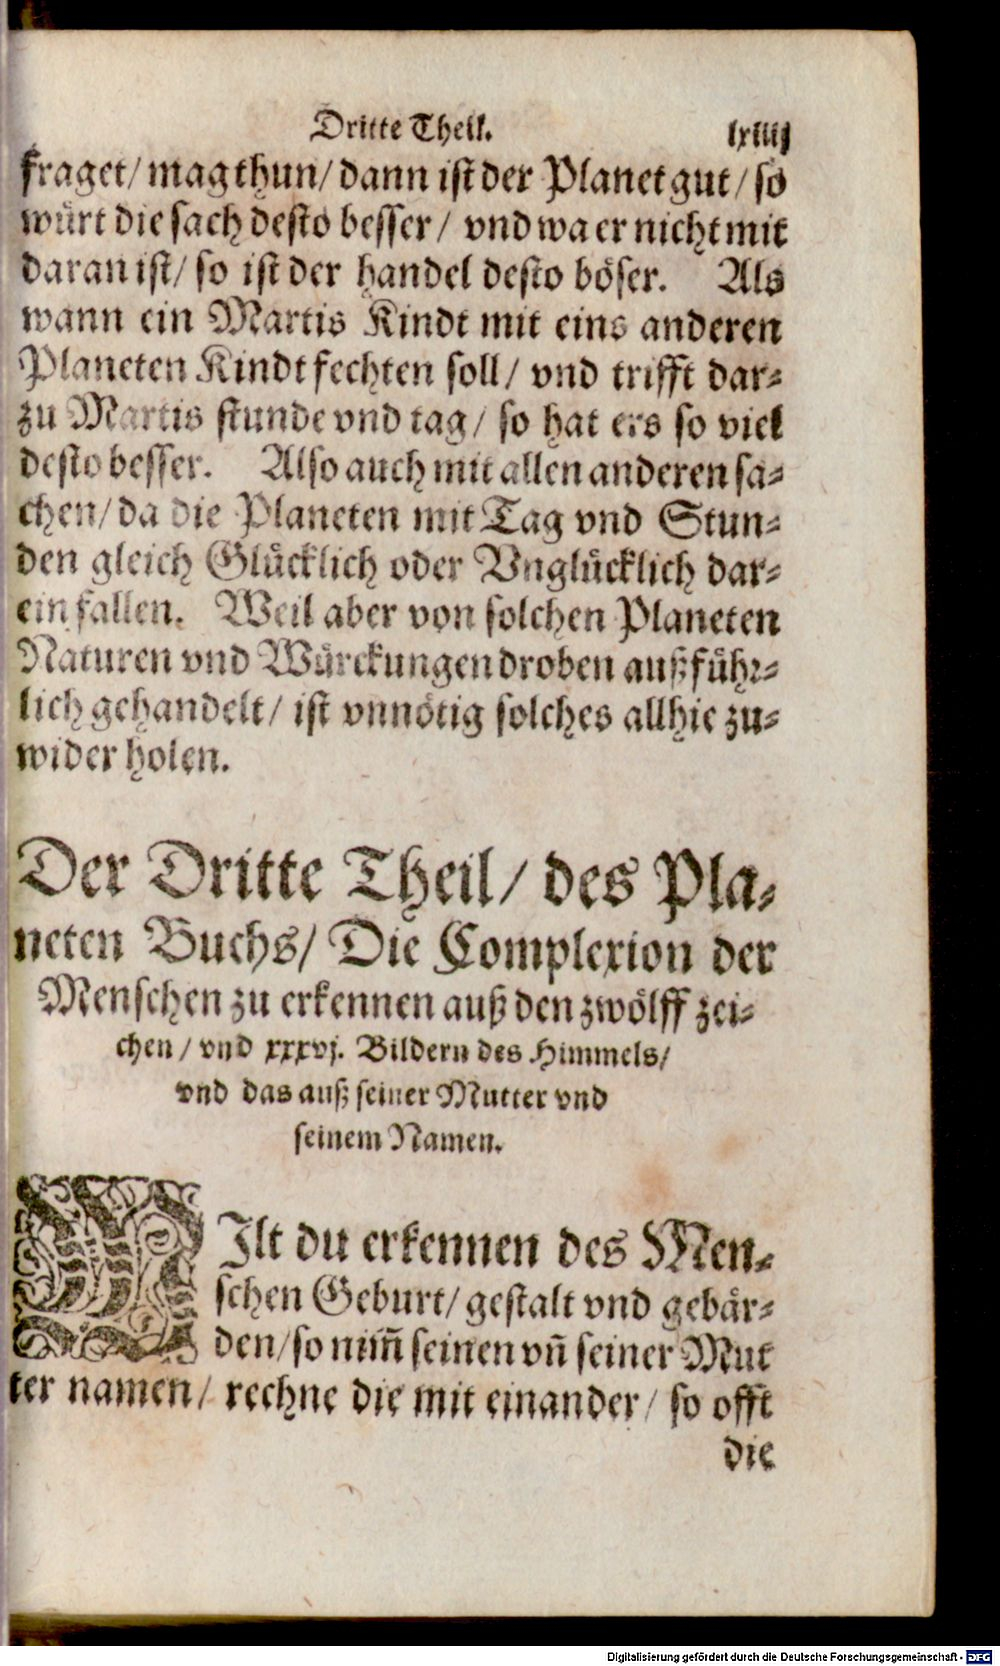 Dritte Theil. lxiiij
fraget/ mag thun/ dann ist der Planet gut/ so
würt die sach desto besser/ vnd wa er nicht mit
daran ist/ so ist der handel desto böser. Als
wann ein Martis Kindt mit eins anderen
Planeten Kindt fechten soll/ vnd trifft dar⸗
zu Martis stunde vnd tag/ so hat ers so viel
desto besser. Also auch mit allen anderen sa⸗
chen/ da die Planeten mit Tag vnd Stun⸗
den gleich Glücklich oder Vnglücklich dar⸗
ein fallen. Weil aber von solchen Planeten
Naturen vnd Würckungen droben außführ⸗
lich gehandelt/ ist vnnötig solches allhie zu⸗
wider holen.
Der Dritte Theil/ des Pla⸗
neten Buchs/ Die Complexion der
Menschen zu erkennen auß den zwölff zei⸗
chen/ vnd xxxvj. Bildern des Himmels/
vnd das auß seiner Mutter vnd
seinem Namen.
WIlt du erkennen des Men⸗
schen Geburt/ gestalt vnd gebär⸗
den/ so nim̃ seinen vñ seiner Mut
ter namen/ rechne die mit einander/ so offt
die
Digitalisierung gefördert durch die Deutsche Forschungsgemeinschaft - DFG